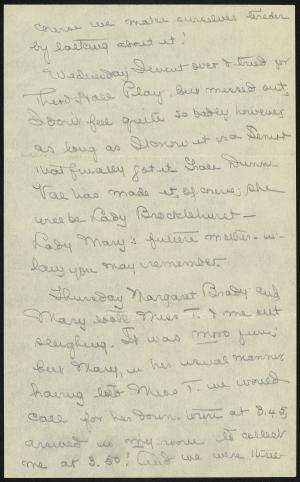 course we make ourselves tireder
by talking about it!
Wednesday I went over & tried for
Third Hall Play, but missed out.
I don't feel quite so badly, however,
as long as I know it is a Senior
that finally got it. Grace Dunn
Val has made it, of course; she
will be Lady Brocklehurst –
Lady Mary's future mother-in-
law, you may remember.
Thursday Margaret Brady and
Mary took Miss T. & me out
sleighing. It was more fun!
But Mary, in her usual manner,
having told Miss T. we would
call for her down town at 3.45,
arrived in my room to collect
me at 3.50! And we were